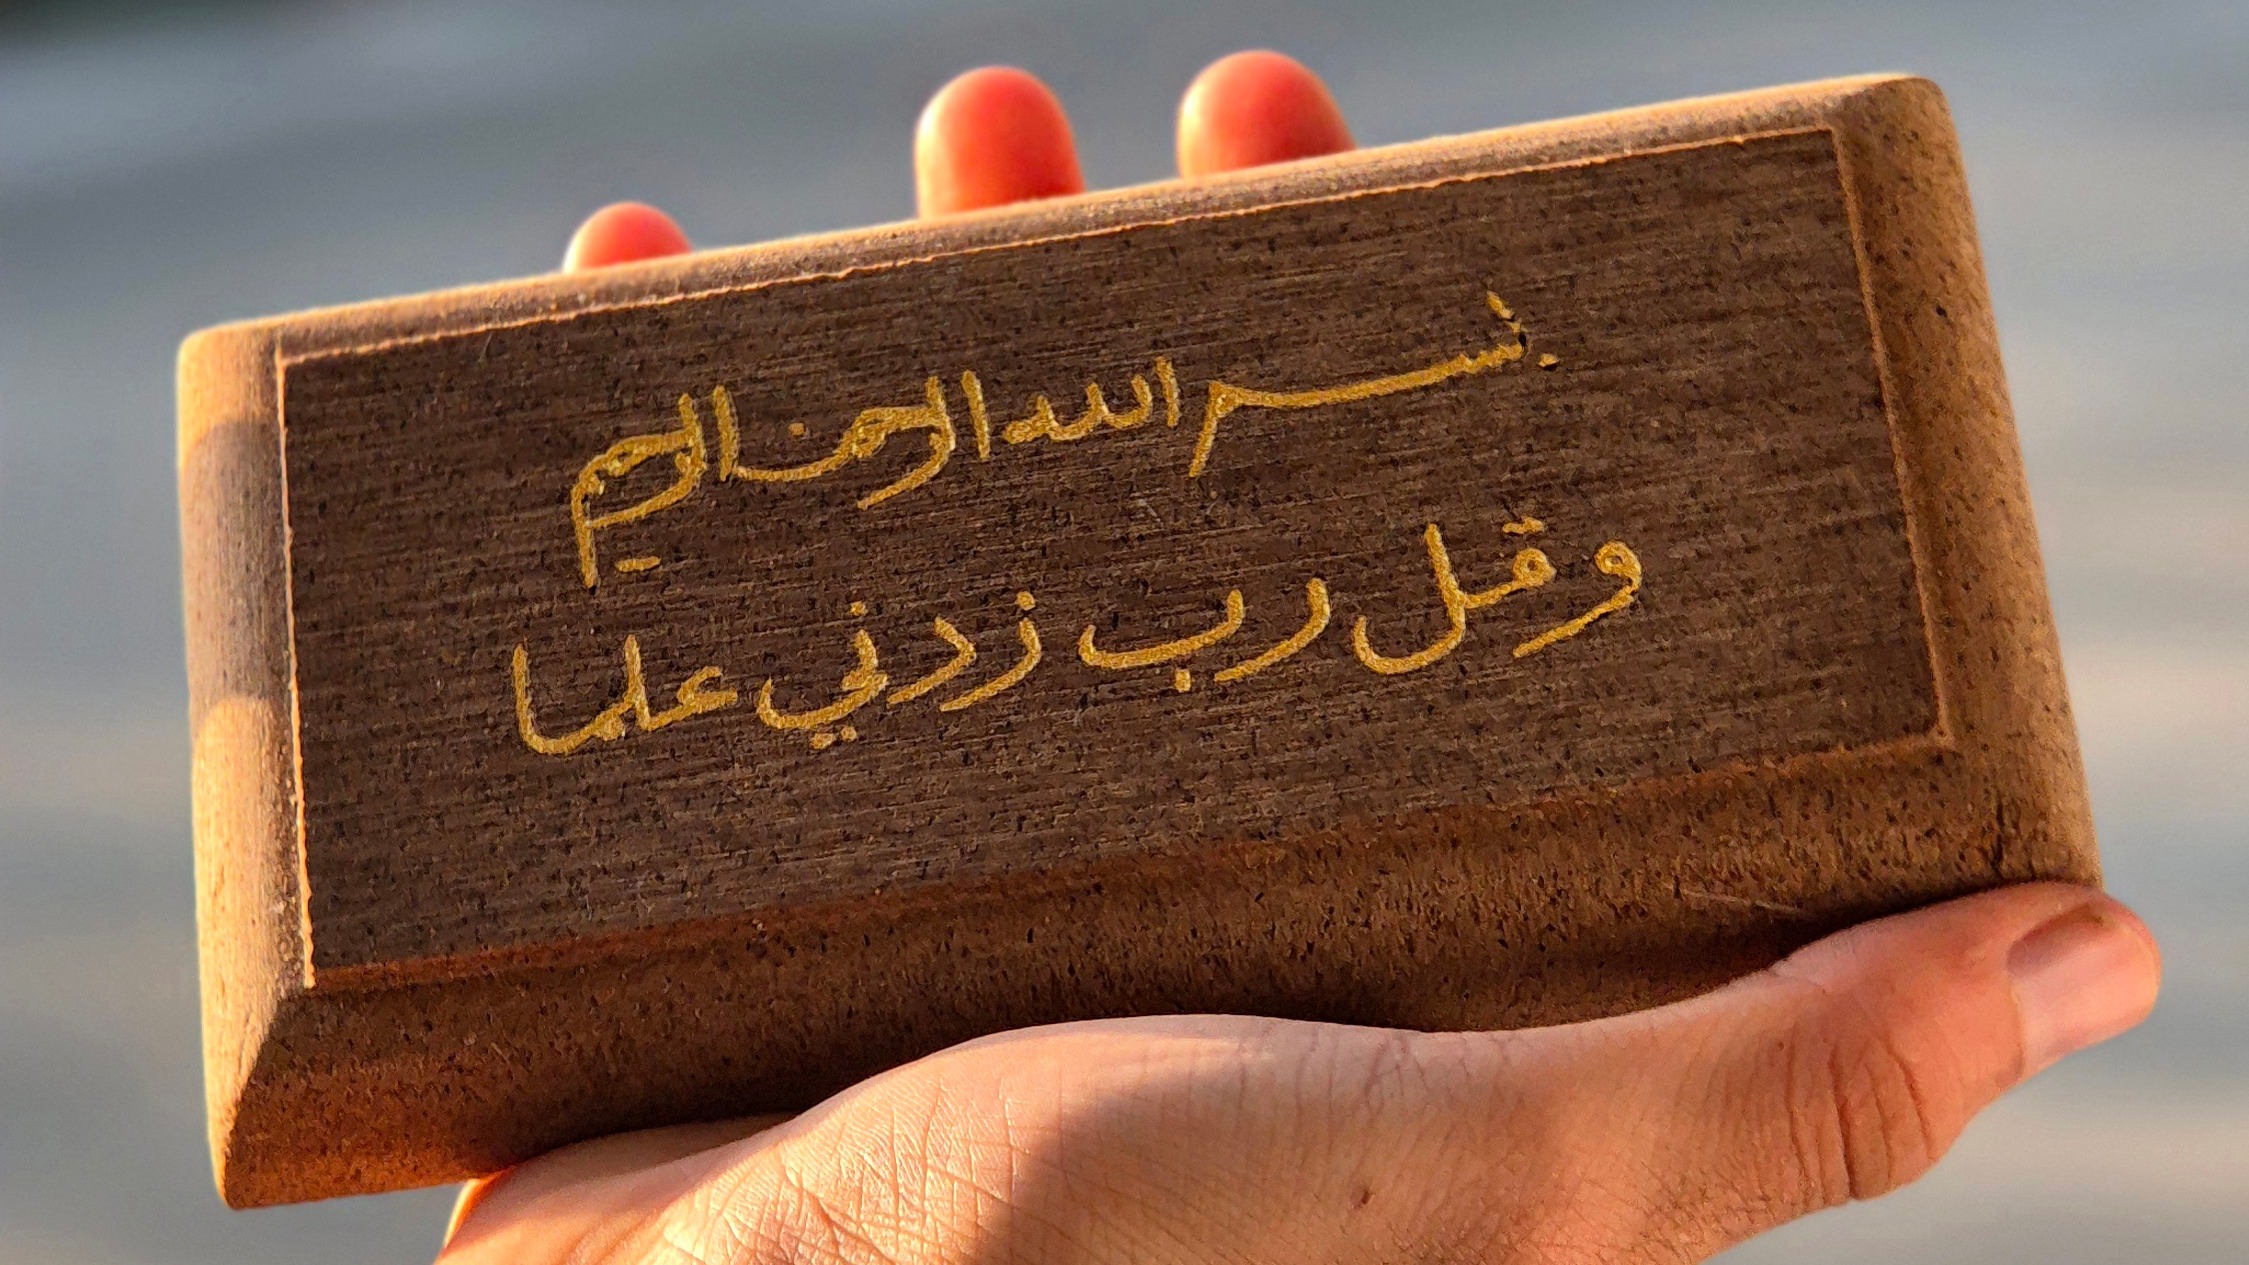 بسم الله الرحمن الرحيم
وقل رب زدني علما